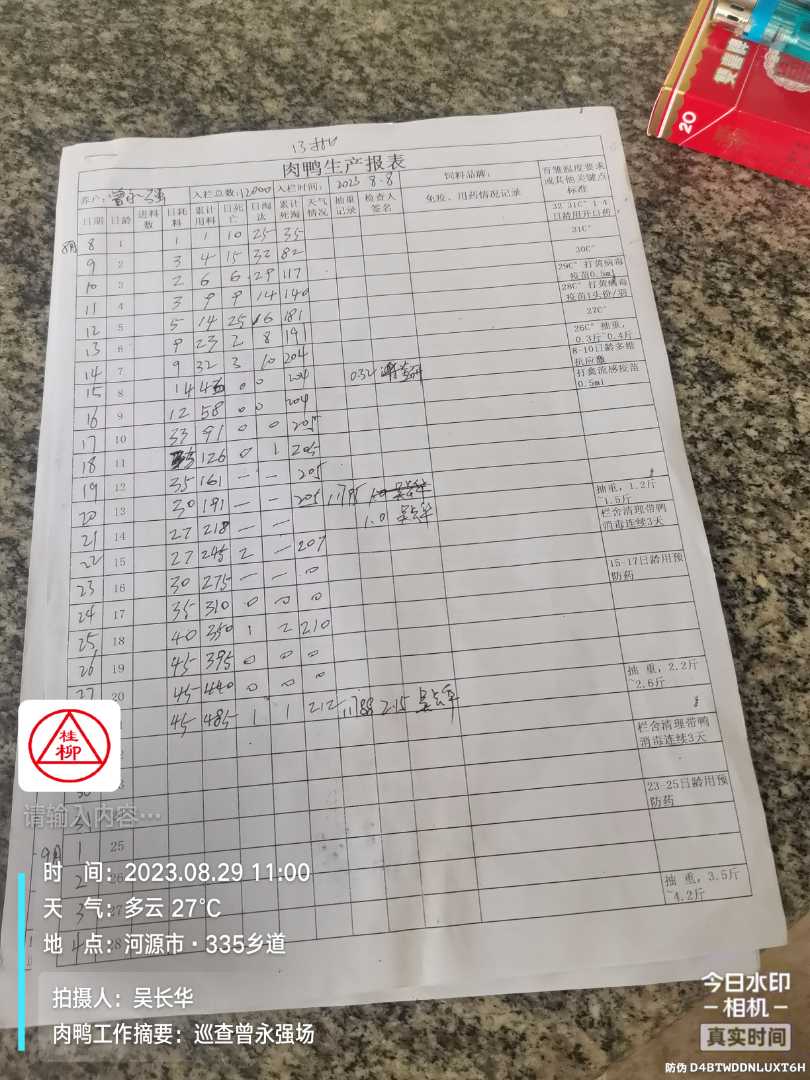 13批
肉鸭生产报表
养户: 曾永强 入栏总数: 12000 入栏时间: 2023 8-8 饲料品牌: 育雏温度要求或其他关键点标准
日期 日龄 进料数 日耗料 累计用料 日死亡 日淘汰 累计死淘 天气情况 抽重记录 检查人签名 免疫, 用药情况记录
8月 8 1 1 1 10 25 35 32-31C° 1-4日龄用开口药
9 2 3 4 15 32 82 31C°
10 3 2 6 6 29 117 30C°
11 4 3 9 9 14 140 29C° 打黄病毒疫苗0.5ml
12 5 5 14 25 16 181 28C° 打黄病毒疫苗1头份/羽
13 6 9 23 2 8 191 27C°
14 7 9 32 3 10 204 0.32 26C° 抽重, 0.3斤~0.4斤
15 8 14 0 0 204 8-10日龄多维抗应激
16 9 12 58 0 0 204 打禽流感疫苗0.5ml
17 10 33 91 0 0 205
18 11 126 0 1 205
19 12 35 161 一 一 205
20 13 30 191 一 一 205 抽重, 1.2斤~1.5斤
21 14 27 218 一 一 1.0 栏舍清理带鸭消毒连续3天
22 15 27 245 2 一 207
23 16 30 275 一 一 0 15-17日龄用预防药
24 17 35 310 0 0 0
25 18 40 350 1 2 210
26 19 45 395 0 0 0
27 20 45 440 0 0 0 抽重, 2.2斤~2.6斤
45 485 1 1 212 1788 2.15 栏舍清理带鸭消毒连续3天
23-25日龄用预防药
9月 1 25
2 26
3 27 抽重, 3.5斤~4.2斤
4 28
20
桂柳
请输入内容…
时 间: 2023.08.29 11:00
天 气: 多云 27℃
地 点: 河源市·335乡道
拍摄人: 吴长华
肉鸭工作摘要: 巡查曾永强场
今日水印
相机
真实时间
防伪 D4BTWDDNLUXT6H